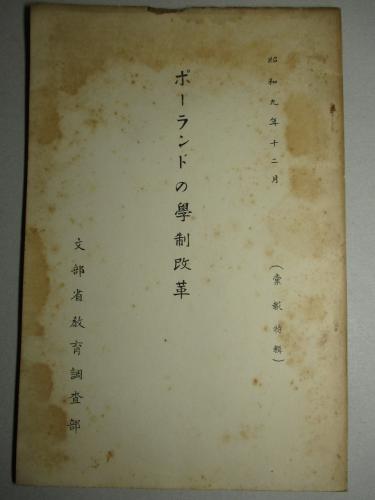 昭和九年十二月
(彙報特輯)
ポーランドの學制改革
文部省教育調査部